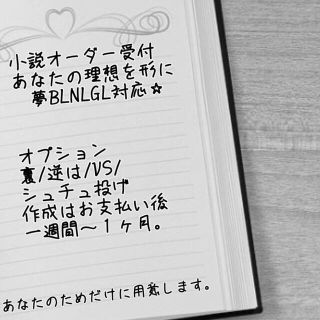 小説オーダー受付
あなたの理想を形に
夢BLNLGL対応☆
オプション
裏/逆は/VS/
シュチュ投げ
作成はお支払い後
一週間～1ヶ月。
あなたのためだけに用意します。